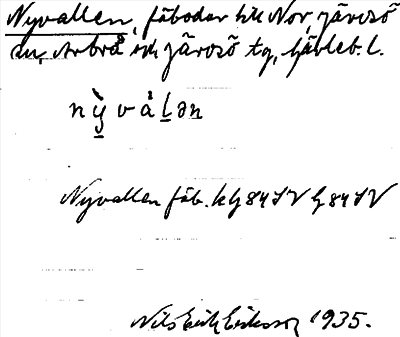 Nyvallen, fäbodar till Nor, Järvsö
sn, Arbrå och Järvsö tg, Gävleb. l.
nỳvåḷən
Nyvallen fäb. k G 84 SV G 84 SV
Nils Erik Eriksson 1935.